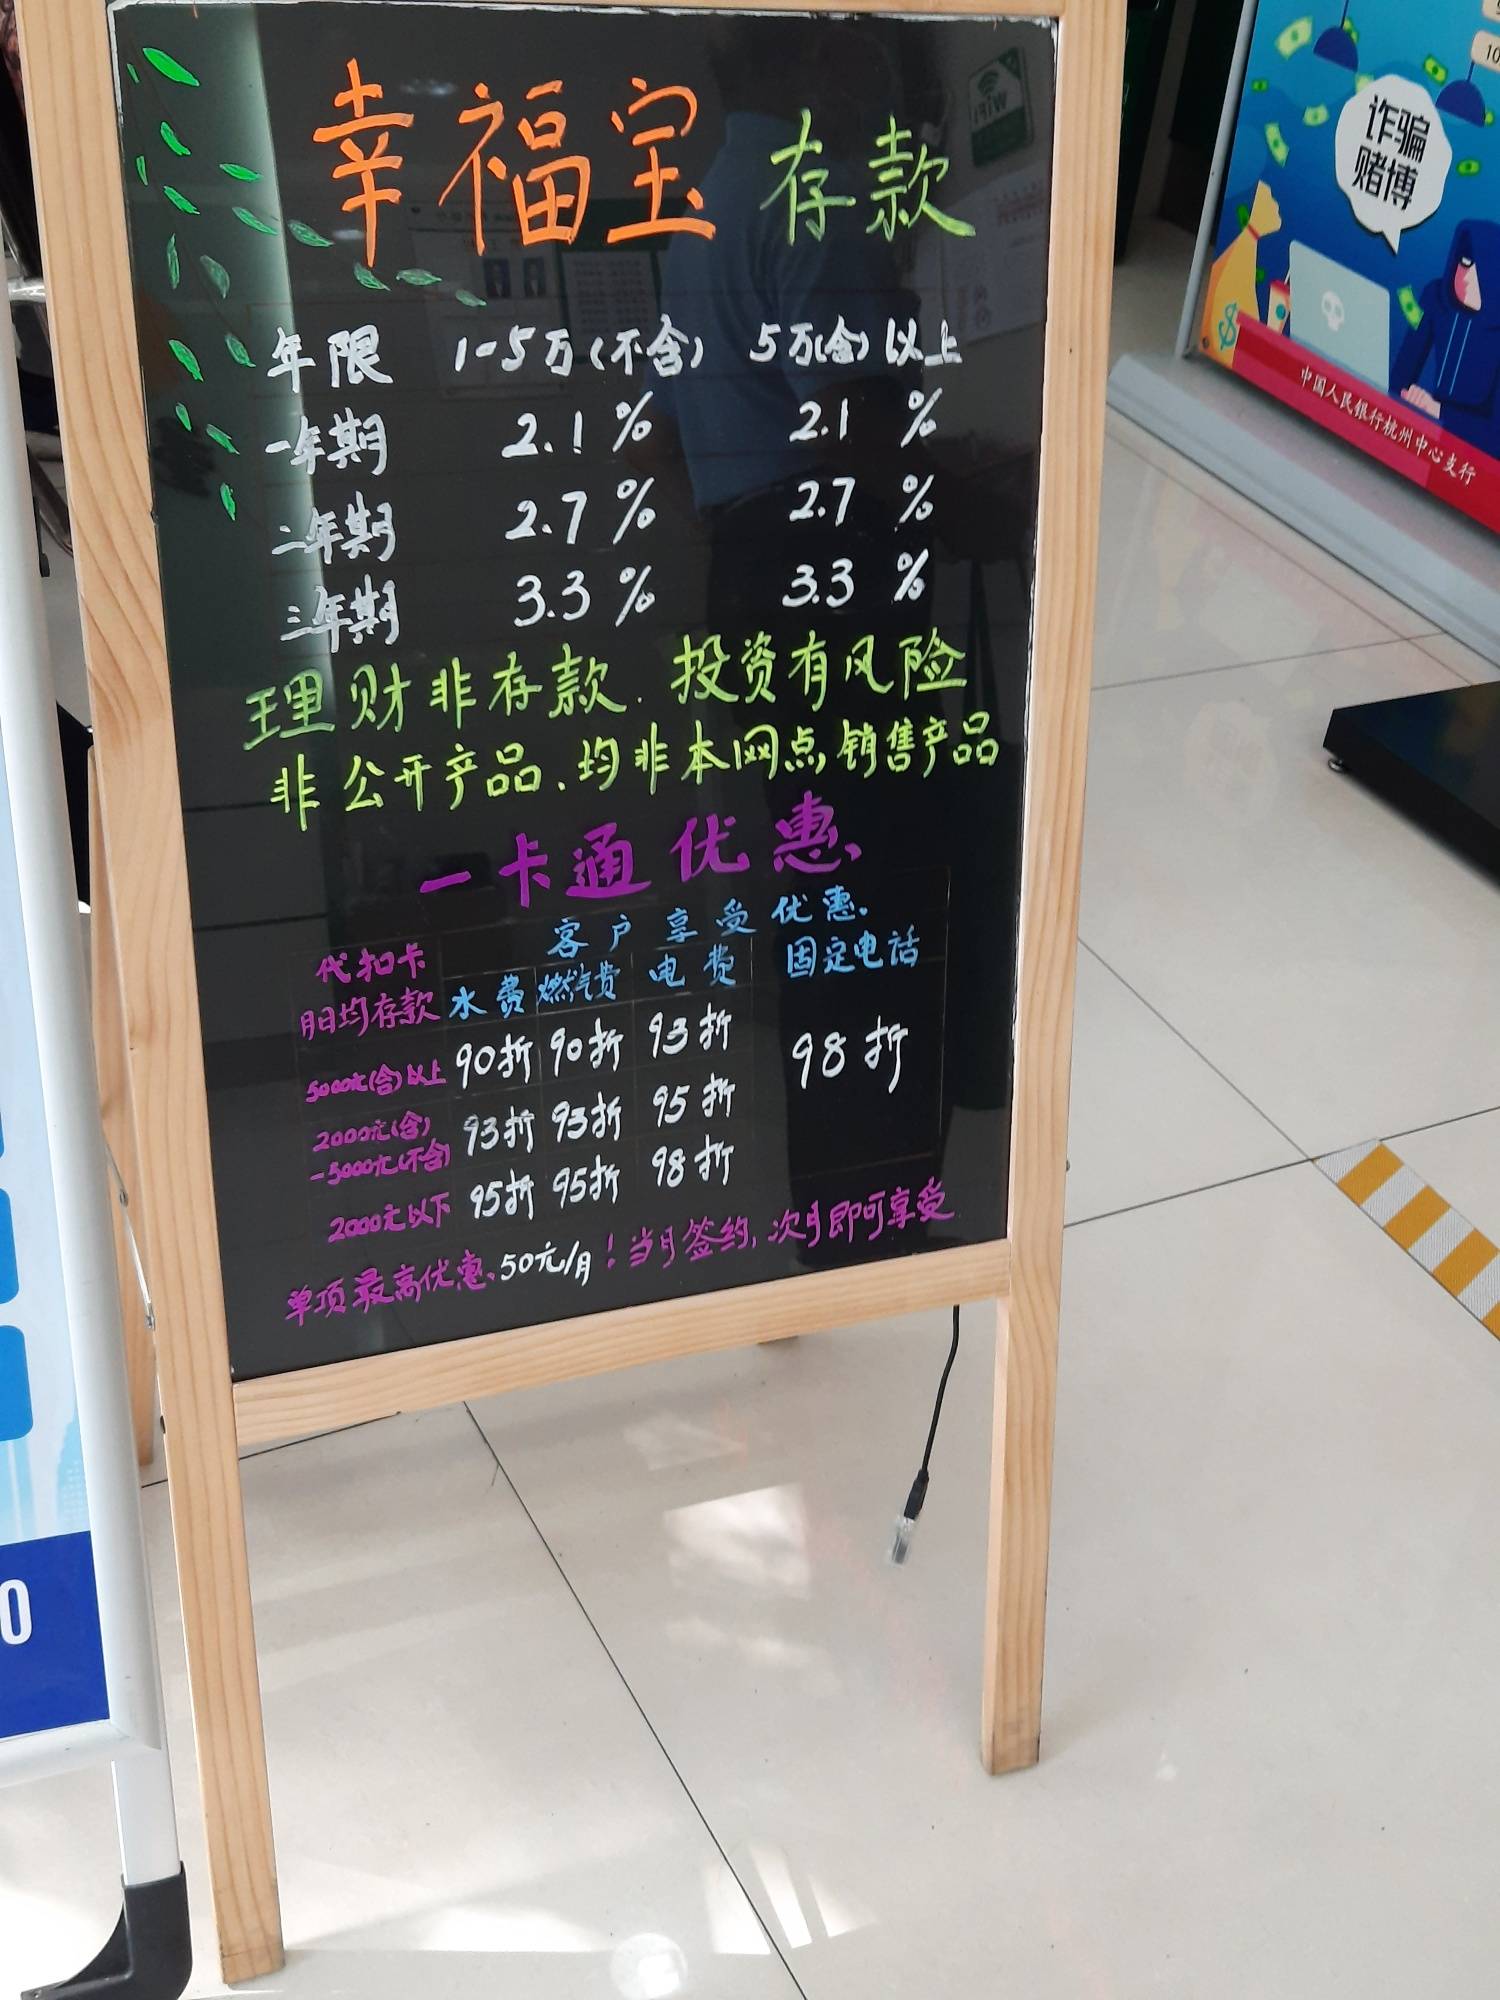 幸福宝 存款
年限 1-5万(不含) 5万(含)以上
一年期 2.1% 2.1%
二年期 2.7% 2.7%
三年期 3.3% 3.3%
理财非存款.投资有风险
非公开产品、均非本网点销售产品
一卡通优惠
代扣卡 客户享受优惠.
月日均存款 水费 燃气费 电费 固定电话
5000元(含)以上 90折 90折 93折 98折
2000元(含)
-5000元(不含) 93折 93折 95折
2000元以下 95折 95折 98折
单项最高优惠、50元/月!当月签约,次月即可享受
诈骗
赌博
中国人民银行杭州中心支行
10
WiFi
0